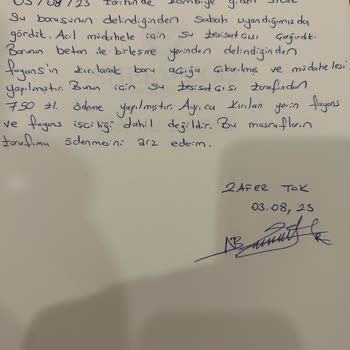 03/08/23 tarihinde kombiye giden sıcak
su borusunun delindiğinden sabah uyandığımızda
gördük. Acil müdahele için su tesisatçısı çağırdık.
Borunun beton ile birleşme yerinden delindiğinden
fayans'ın kırılarak boru açığa çıkarılmış ve müdahelesi
yapılmıştır. Bunun için su tesisatçısı tarafından
750 tl. ödeme yapılmıştır. Ayrıca kırılan yerin fayans
ve fayans işçiliği dahil değildir. Bu masrafların
tarafıma ödenmesini arz ederim.
ZAFER TOK
03.08,23